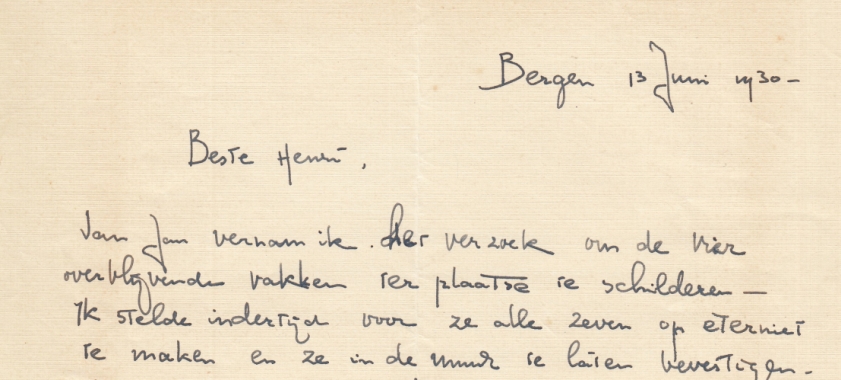 Bergen 13 Juni 1930 –
Beste Henri,
Van Jan vernam ik het verzoek om de vier
overblijvende vakken ter plaatse te schilderen —
Ik stelde indertijd voor ze alle zeven op eterniet
te maken en ze in de muur te laten bevestigen.